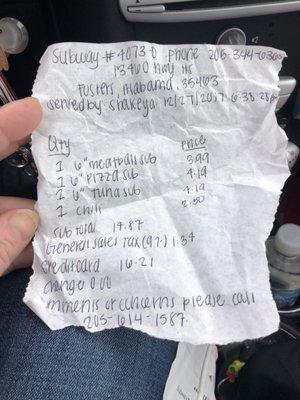 Subway #4073-0 phone 205-344-6365
18460 Hwy
Fosters, Alabama. 35463
served by Shakeya 12/27/2017 6:38:28 pm
Qty Price
1 6" meatball sub 3.99
1 6" pizza sub 4.19
1 6" tuna sub 4.19
1 chili 2.50
sub total 14.87
General Sales Tax (9%) 1.34
credit card 16.21
change 0.00
or concerns please call
205-614-1587